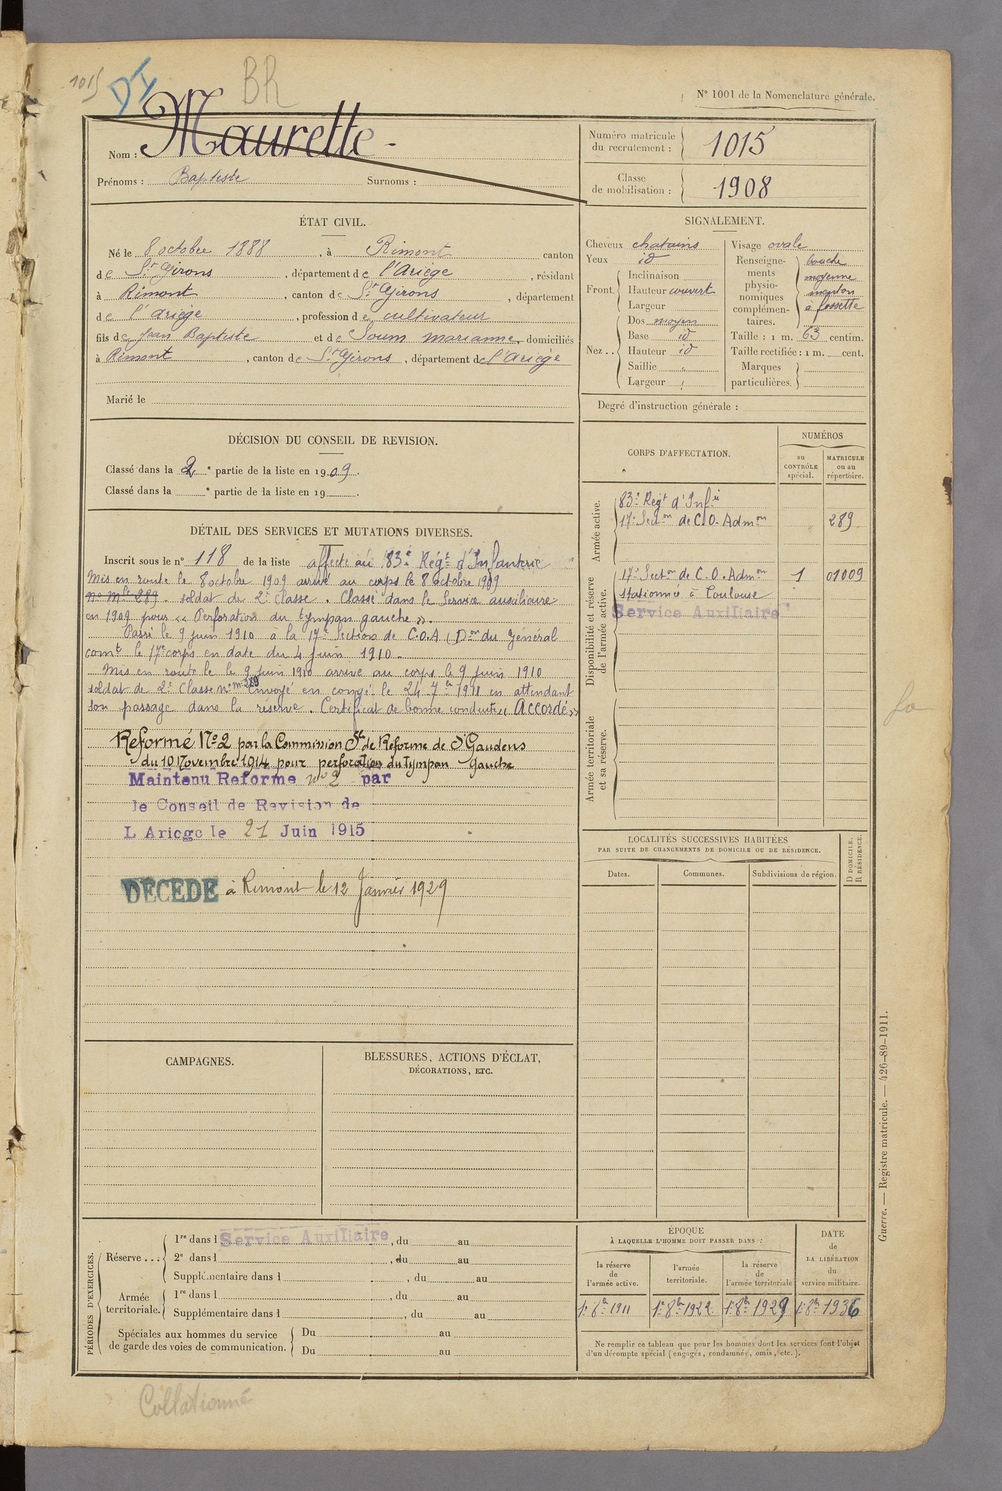 1015
DI
BR
N° 1001 de la Nomenclature générale.
Nom : Maurette
Prénoms : Baptiste Surnoms :
Numéro matricule du recrutement : 1015
Classe de mobilisation : 1908
ÉTAT CIVIL.
Né le 8 octobre 1888, à Rimont canton
de St Girons, département de l'Ariège, résidant
à Rimont, canton de St Girons, département
de l'Ariège, profession de cultivateur
fils de Jean Baptiste et de Soum marianne, domiciliés
à Rimont, canton de St Girons, département de l'Ariège
Marié le
SIGNALEMENT.
Cheveux chatains
Yeux id
Front. Inclinaison
Hauteur couvert
Largeur
Nez.. Dos moyen
Base id
Hauteur id
Saillie
Largeur
Visage ovale
Renseignements physionomiques complémentaires. bouche moyenne menton à fossette
Taille : 1 m. 63 centim.
Taille rectifiée : 1 m. cent.
Marques particulières.
Degré d'instruction générale :
DÉCISION DU CONSEIL DE REVISION.
Classé dans la 2e partie de la liste en 1909.
Classé dans la e partie de la liste en 19
CORPS D'AFFECTATION.
NUMÉROS
au CONTRÔLE spécial.
MATRICULE ou au répertoire.
Armée active.
83e Regt d'Infie
17e Secton de C.O. Admon 289
Disponibilité et réserve de l'armée active.
17e Secton de C.O. Admon 1 01009
stationnée à Toulouse
Service Auxiliaire
Armée territoriale et sa réserve.
DÉTAIL DES SERVICES ET MUTATIONS DIVERSES.
Inscrit sous le n° 118 de la liste affecté au 83e Régt d'Infanterie
Mis en route le 8 octobre 1909 arrivé au corps le 8 octobre 1909
no mle 289. soldat de 2e classe. Classé dans le Service auxiliaire
en 1909 pour « Perforation du tympan gauche ».
Passé le 9 juin 1910 à la 17e Sections de C.O.A (Don du Général
comt le 17e corps en date du 4 juin 1910.
Mis en route le le 9 juin 1910 arrivé au corps le 9 juin 1910
soldat de 2e Classe no mle 289 Envoyé en congé le 24 7bre 1911 en attendant
son passage dans la réserve. Certificat de bonne conduite « Accordé »
Réformé N°2 par la Commission Sle de Réforme de St Gaudens
du 10 Novembre 1914 pour perforation du tympan gauche
Maintenu Reforme no 2 par
le Conseil de Revision de
L Ariege le 21 Juin 1915
DÉCÉDÉ à Rimont le 12 Janvier 1929
LOCALITÉS SUCCESSIVES HABITÉES
PAR SUITE DE CHANGEMENTS DE DOMICILE OU DE RÉSIDENCE.
Dates.
Communes.
Subdivisions de région.
D DOMICILE, R RÉSIDENCE.
CAMPAGNES.
BLESSURES, ACTIONS D'ÉCLAT,
DÉCORATIONS, ETC.
PÉRIODES D'EXERCICES.
Réserve... 1re dans l Service Auxiliaire, du au
2e dans l, du au
Supplémentaire dans l, du au
Armée territoriale. 1re dans l, du au
Supplémentaire dans l, du au
Spéciales aux hommes du service de garde des voies de communication. Du au
Du au
ÉPOQUE
À LAQUELLE L'HOMME DOIT PASSER DANS :
la réserve de l'armée active.
l'armée territoriale.
la réserve de l'armée territoriale
DATE de LA LIBÉRATION du service militaire.
1r 8bre 1911 1r 8bre 1922 1r 8bre 1929 1r 8bre 1936
Ne remplir ce tableau que pour les hommes dont les services font l'objet
d'un décompte spécial (engagés, condamnés, omis, etc.).
Guerre. — Registre matricule. — 426-89-1911.
Collationné